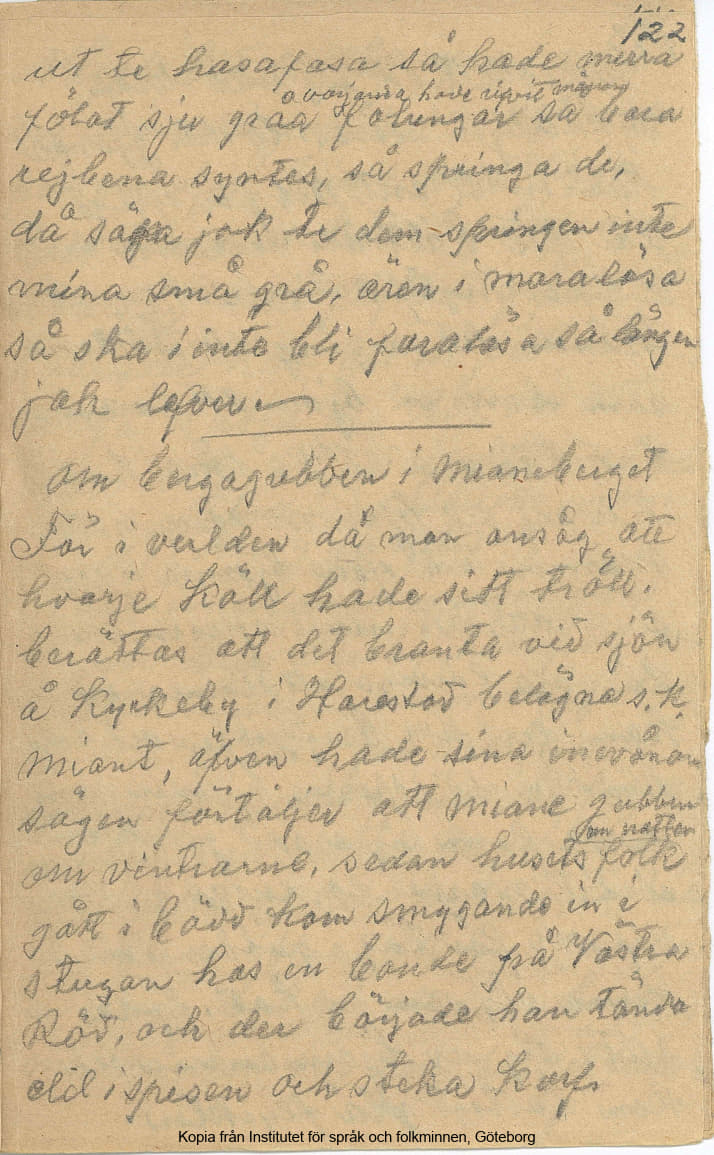 122
ut te hasafasa så hade merra
o varjenda hade rivit
fölat sju gråa fölungar så bara
rejbena syntes, så springa de,
då säja jak te dem springen inte
mina små grå, ären i moralösa
så ska i inte bli faralösa så längen
jak lefver
om bergagubben i Mianeberget
För i verlden då man ansåg att
hvarje Köll hade sitt tröll.
berättas att det branta vid sjön
å Kyrkeby i Harestad belägna s.k.
Miant, äfven hade sina invånare
sägen förtäljer att Miane gubben
om natten
om vintrarne, sedan husets folk
gått i bädd kom smygande in i
stugan hos en bonde från Västra
Röd, och der började han tända
eld i spisen och steka korf.
Kopia från Institutet för språk och folkminnen, Göteborg